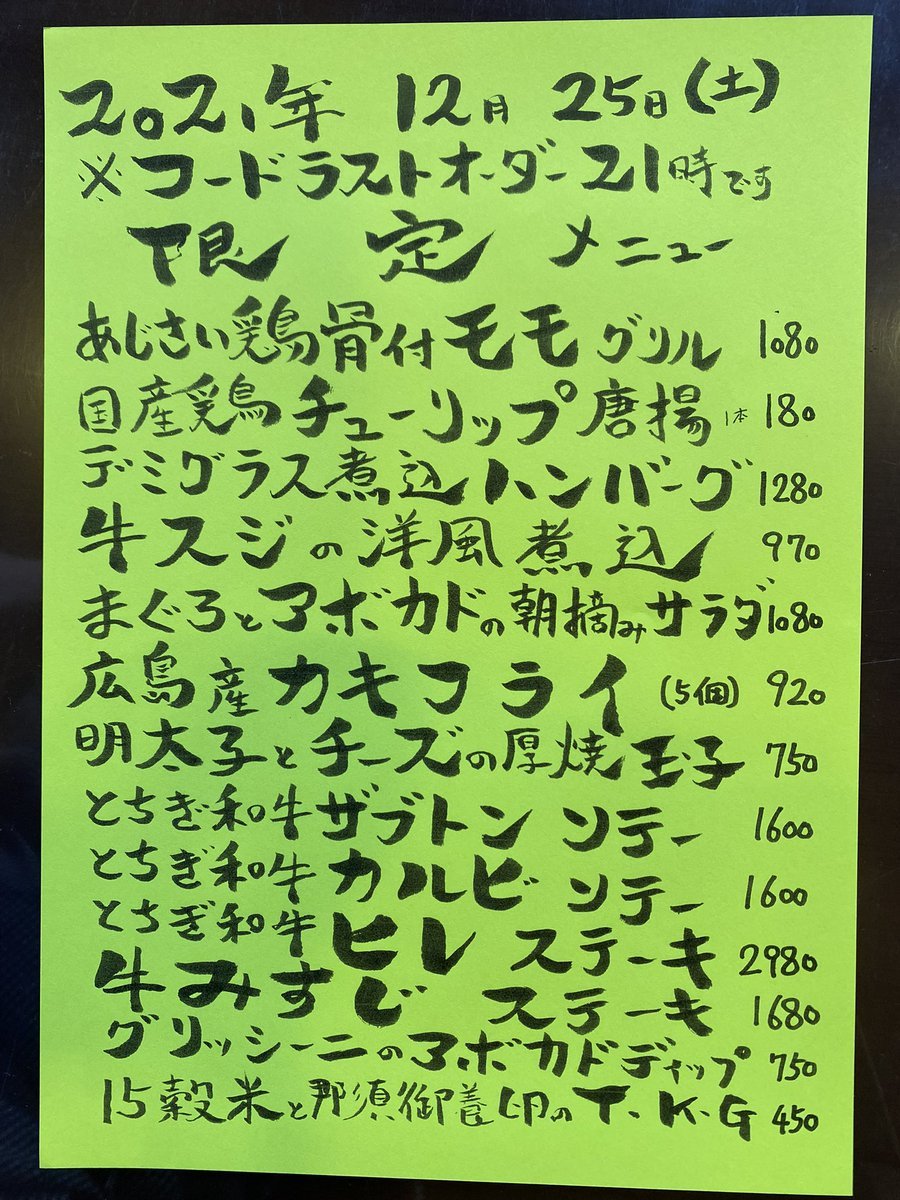 2021年 12月 25日(土)
※フードラストオーダー21時です
限定メニュー
あじさい鶏骨付モモグリル 1080
国産鶏チューリップ唐揚 1本 180
デミグラス煮込ハンバーグ 1280
牛スジの洋風煮込 970
まぐろとアボカドの朝摘みサラダ 1080
広島産カキフライ(5個) 920
明太子とチーズの厚焼玉子 750
とちぎ和牛ザブトンソテー 1600
とちぎ和牛カルビソテー 1600
とちぎ和牛ヒレステーキ 2980
牛みすじステーキ 1680
グリッシーニのアボカドディップ 750
15穀米と那須御養卵のT.K.G 450